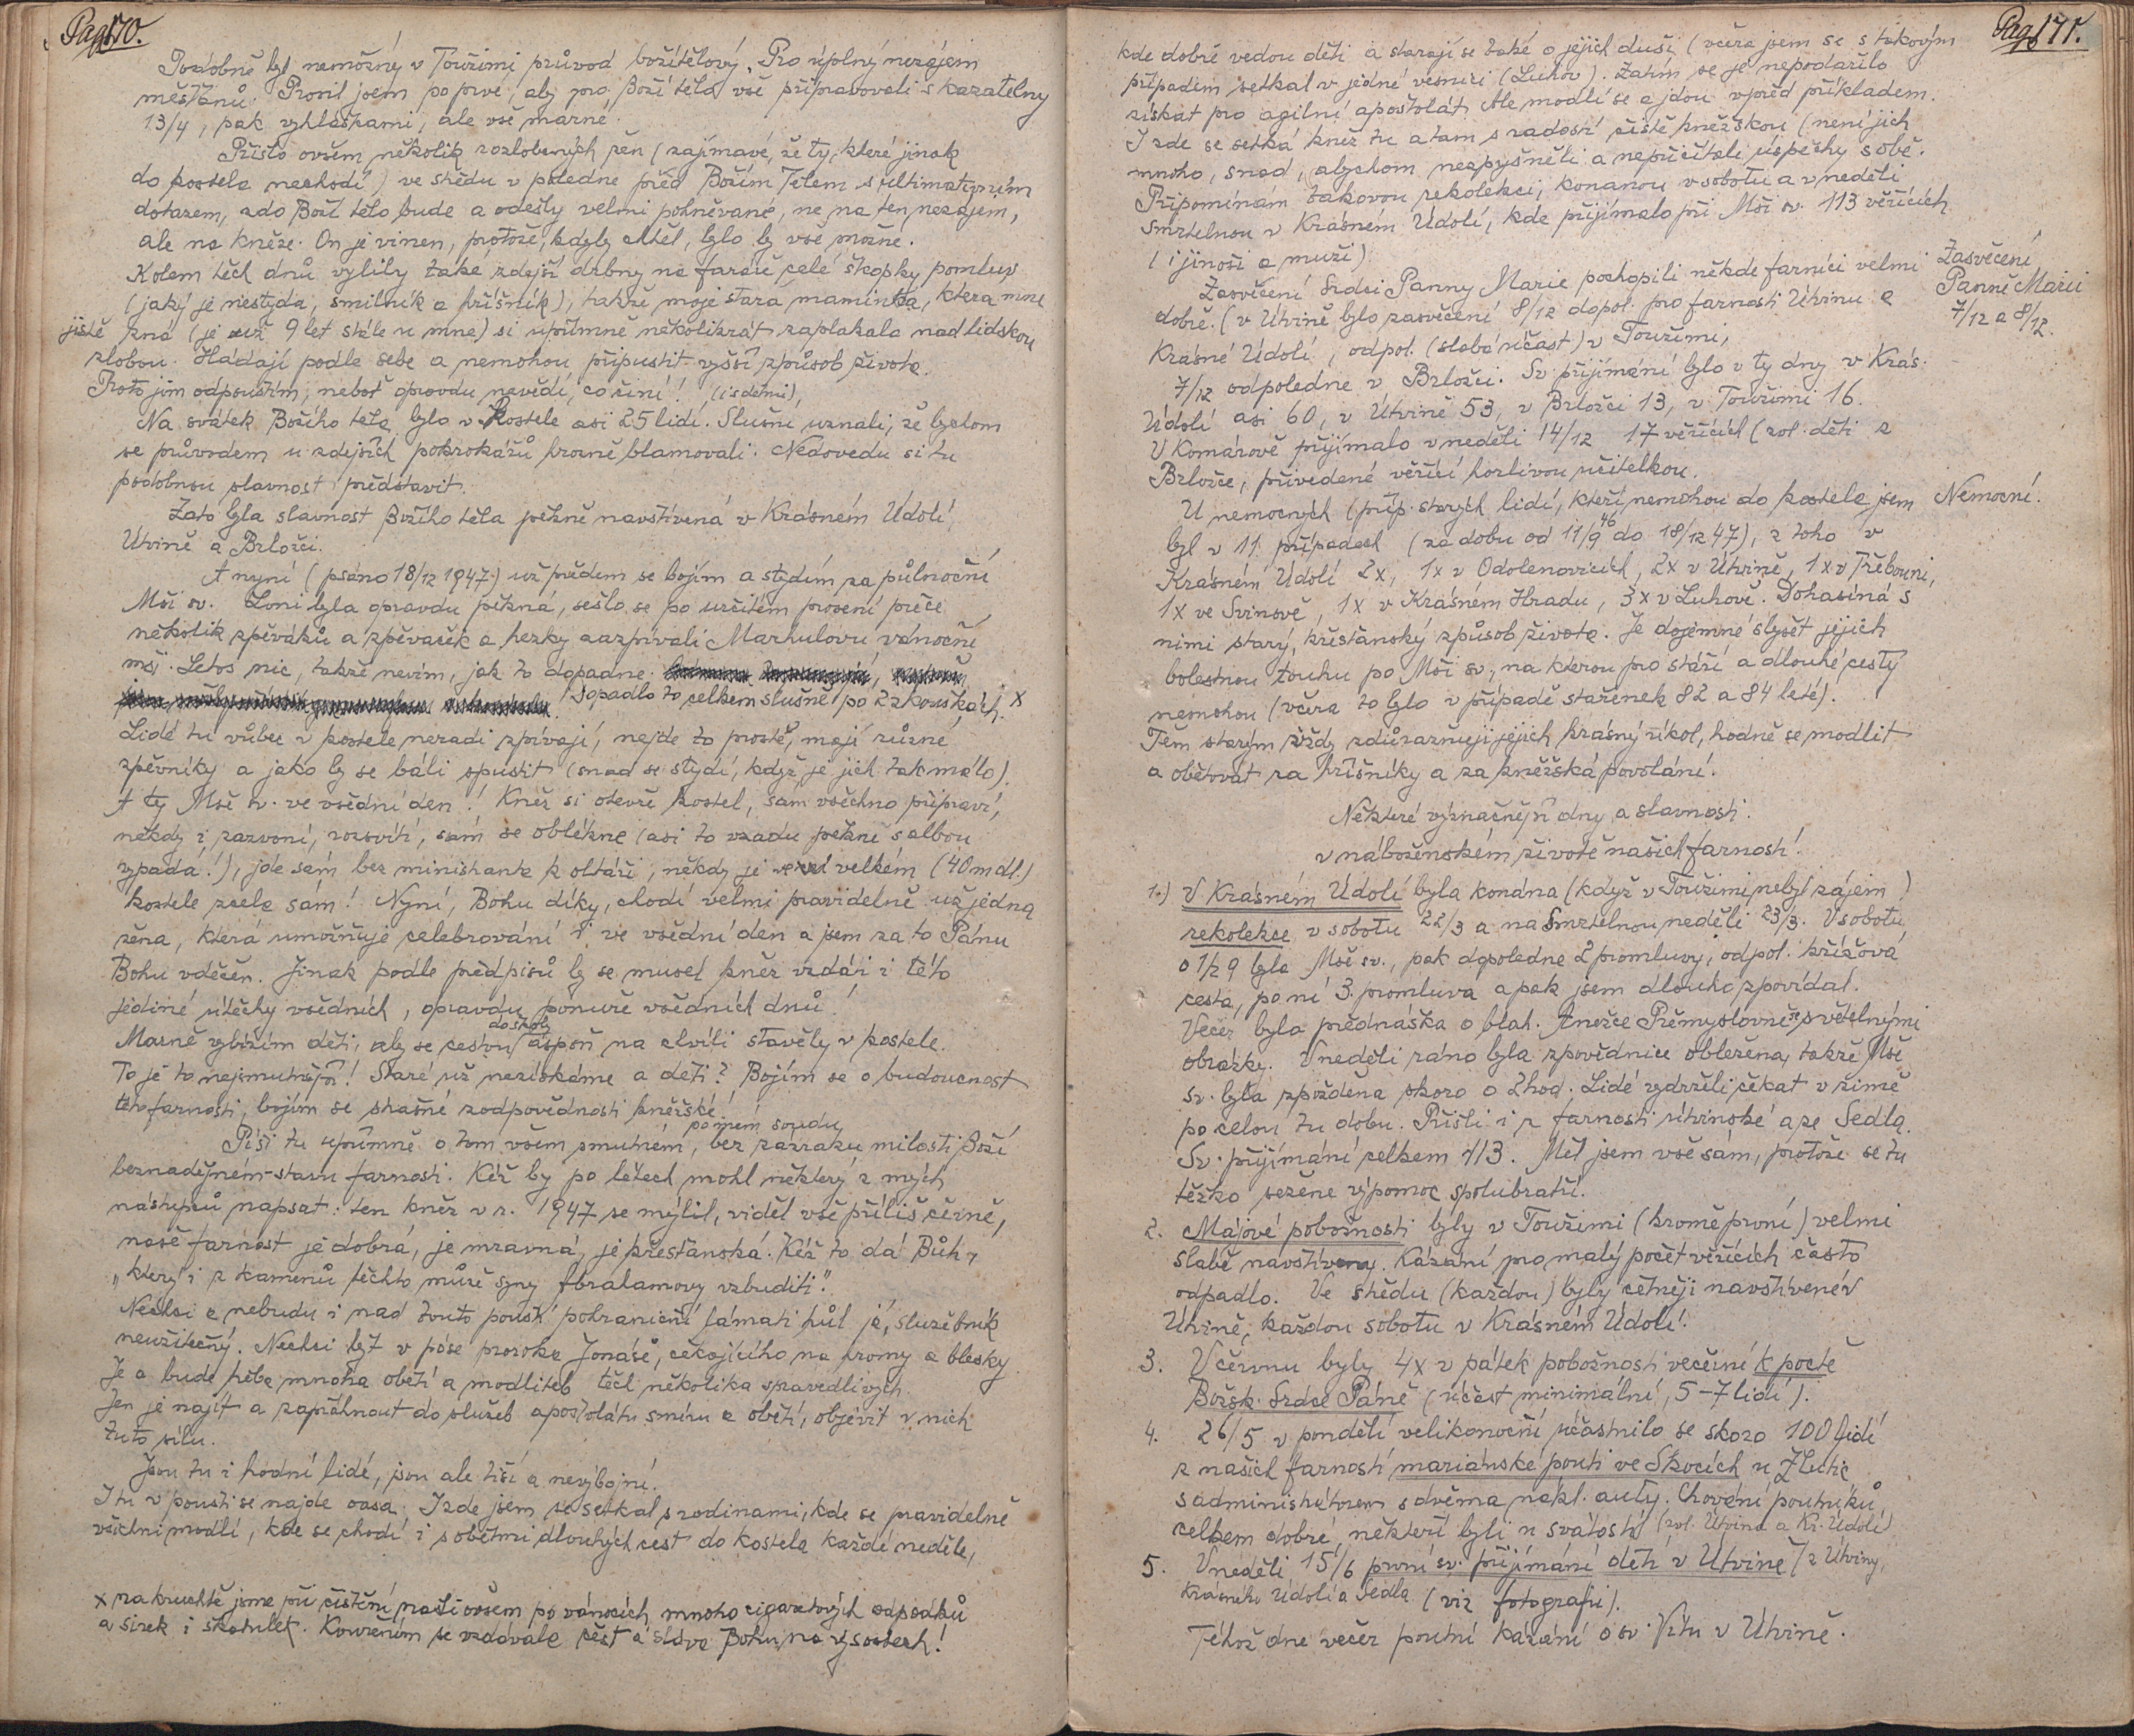 Pag. 170.
Podobně byl nemožný v Toužimi průvod božítělový „Pro úplný nezájem
měšťanů. Prosil jsem po prvé, aby pro Boží tělo vše připravovali s kazatelny
13/4, pak vyhláškami, ale vše marné.
Přišlo ovšem několik rozlobených žen (zajímavé, že ty, které jinak
do kostela nechodí) ve středu v poledne před Božím Tělem s ultimativním
dotazem, zdo Boží tělo bude a odešly velmi pohněvané, ne na ten nezájem,
ale na kněze. On je vinen, protože, kdyby chtěl, bylo by vše možné.
Kolem těch dnů vylily také zdejší drbny na faráře celé škopky pomluv
(jaký je nestyda, smilník a hříšník), takže moje stará maminka, která mne
jistě zná (je už 9 let stále u mne) si upřímně několikrát zaplakala nad lidskou
zlobou. Hádají podle sebe a nemohou připustit vyšší způsob života.
Proto jim odpouštím, neboť opravdu nevědí, co činí! (i s dětmi),
Na svátek Božího těla bylo v Kostele asi 25 lidí. Slušní uznali, že bychom
se průvodem u zdejších pokrokářů hrozně blamovali. Nedovedu si tu
podobnou slavnost představit.
Zato byla slavnost Božího těla pěkně navštívená v Krásném Údolí,
Útvině a Brložci.
A nyní (psáno 18/12 1947) už předem se bojím a stydím za půlnoční
Mši sv. Loni byla opravdu pěkná, sešlo se po určitém prosení přece
několik zpěváků a zpěvaček a hezky zazpívali Marhulovu vánoční
mši. Letos nic, takže nevím, jak to dopadne.
Dopadlo to celkem slušně po 2 zkouškách. x
Lidé tu vůbec v kostele neradi zpívají, nejde to prostě, mají různé
zpěvníky a jako by se báli spustit (snad se stydí, když je jich tak málo).
A ty Mše sv. ve všední den! Kněz si otevře kostel, sám všechno připraví,
někdy i zazvoní, rozsvítí, sám se oblékne (asi to vzadu pěkně s albou
vypadá!), jde sám bez ministranta k oltáři, někdy je ve velkém (40 m dl.)
kostele zcela sám! Nyní, Bohu díky, chodí velmi pravidelně už jedna
žena, která umožňuje celebrování i ve všední den a jsem za to Pánu
Bohu vděčen. Jinak podle předpisů by se musel kněz vzdáti i této
jediné útěchy všedních, opravdu ponuře všedních dnů!
Marně vybízím děti, aby se cestou do školy aspoň na chvíli stavěly v kostele.
To je to nejsmutnější! Staré už nezískáme a děti? Bojím se o budoucnost
této farnosti, bojím se strašné zodpovědnosti kněžské!
Píši tu upřímně o tom všem smutném, po mém soudu bez zázraku milosti Boží
beznadějném stavu farnosti. Kéž by po létech mohl některý z mých
nástupců napsat: ten kněz v r. 1947 se mýlil, viděl vše příliš černě,
naše farnost je dobrá, je mravná, je křesťanská. Kéž to dá Bůh,
„který i z kamenů těchto může syny Abrahamovy vzbuditi."
Nechci a nebudu i nad touto pouští pohraniční lámati hůl já, služebník
neužitečný. Nechci být v póse proroka Jonáše, čekajícího na hromy a blesky
Je a bude třeba mnoha obětí a modliteb těch několika spravedlivých.
Jen je najít a zapřáhnout do služeb apoštolátu smíru a obětí, objevit v nich
tuto sílu.
Jsou tu i hodní lidé, jsou ale tiší a nevýbojní.
I tu v poušti se najde oasa. I zde jsem se setkal s rodinami, kde se pravidelně
všichni modlí, kde se chodí i s obětmi dlouhých cest do kostela každé neděle,
x na kruchtě jsme při čištění našli ovšem po vánocích mnoho cigaretových odpadků
a sirek i škatulek. Kouřením se vzdávala čest a sláva Bohu na výsostech!
Pag. 171.
kde dobře vedou děti a starají se také o jejich duši (včera jsem se s takovým
případem setkal v jedné vesnici (Luhov). Zatím se je nepodařilo
získat pro agilní apoštolát. Ale modlí se a jdou vpřed příkladem.
I zde se setká kněz tu a tam s radostí čistě kněžskou (není jich
mnoho, snad, abychom nezpyšněli a nepřičítali úspěchy sobě.
Připomínám takovou rekolekci, konanou v sobotu a v neděli
Smrtelnou v Krásném Údolí, kde přijímalo při Mši sv. 113 věřících
(i jinoši a muži).
Zasvěcení Srdci Panny Marie pochopili někde farníci velmi
dobře. (v Útvině bylo zasvěcení 8/12 dopol. pro farnosti Útvinu a
Krásné Údolí, odpol. (slabá účast) v Toužimi,
7/12 odpoledne v Brložci. Sv. přijímání bylo v ty dny v Krás.
Údolí asi 60, v Útvině 53, v Brložci 13, v Toužimi 16.
V Komárově přijímalo v neděli 14/12 17 věřících (zvl. děti z
Brložce, přivedené věřící horlivou učitelkou.
Zasvěcení
Panně Marii
7/12 a 8/12.
U nemocných (příp. starých lidí, kteří nemohou do kostela jsem
byl v 11 případech (za dobu od 11/9 46 do 18/12 47), z toho v
Krásném Údolí 2x, 1x v Odolenovicích, 2x v Útvině, 1x v Třebouni,
1x ve Svinově, 1x v Krásném Hradu, 3x v Luhově. Dohasíná s
nimi starý, křesťanský způsob života. Je dojemné slyšet jejich
bolestnou touhu po Mši sv., na kterou pro stáří a dlouhé cesty
nemohou (včera to bylo v případě stařenek 82 a 84 leté).
Těm starým vždy zdůrazňuji jejich krásný úkol, hodně se modlit
a obětovat za hříšníky a za kněžská povolání.
Nemocní.
Některé význačnější dny a slavnosti
v náboženském životě našich farností.
1.) V Krásném Údolí byla konána (když v Toužimi nebyl zájem)
rekolekce v sobotu 22/3 a na Smrtelnou neděli 23/3. V sobotu
o 1/2 9 byla Mše sv., pak dopoledne 2 promluvy, odpol. křížová
cesta, po ní 3. promluva a pak jsem dlouho zpovídal.
Večer byla přednáška o blah. Anežce Přemyslovně se světelnými
obrázky. V neděli ráno byla zpovědnice obležena, takže Mše
sv. byla zpožděna skoro o 2 hod. Lidé vydrželi čekat v zimě
po celou tu dobu. Přišli i z farnosti útvinské a ze Sedla.
Sv. přijímání celkem 113. Měl jsem vše sám, protože se tu
těžko sežene výpomoc spolubratří.
2. Májové pobožnosti byly v Toužimi (kromě první) velmi
slabě navštíveny. Kázání pro malý počet věřících často
odpadlo. Ve středu (každou) byly četněji navštívené v
Útvině, každou sobotu v Krásném Údolí.
3. V červnu byly 4x v pátek pobožnosti večerní k poctě
Božsk. Srdce Páně (účast minimální, 5-7 lidí).
4. 26/5 v pondělí velikonoční účastnilo se skoro 100 lidí
z našich farností mariánské pouti ve Skocích u Žlutic
s administrátorem s dvěma nákl. auty. Chování poutníků
celkem dobré, někteří byli u svátostí (zvl. Útvina a Kr. Údolí)
5. V neděli 15/6 první sv. přijímání dětí v Útvině (z Útviny,
Krásného Údolí a Sedla. (viz fotografii).
Téhož dne večer poutní kázání o sv. Vítu v Útvině.